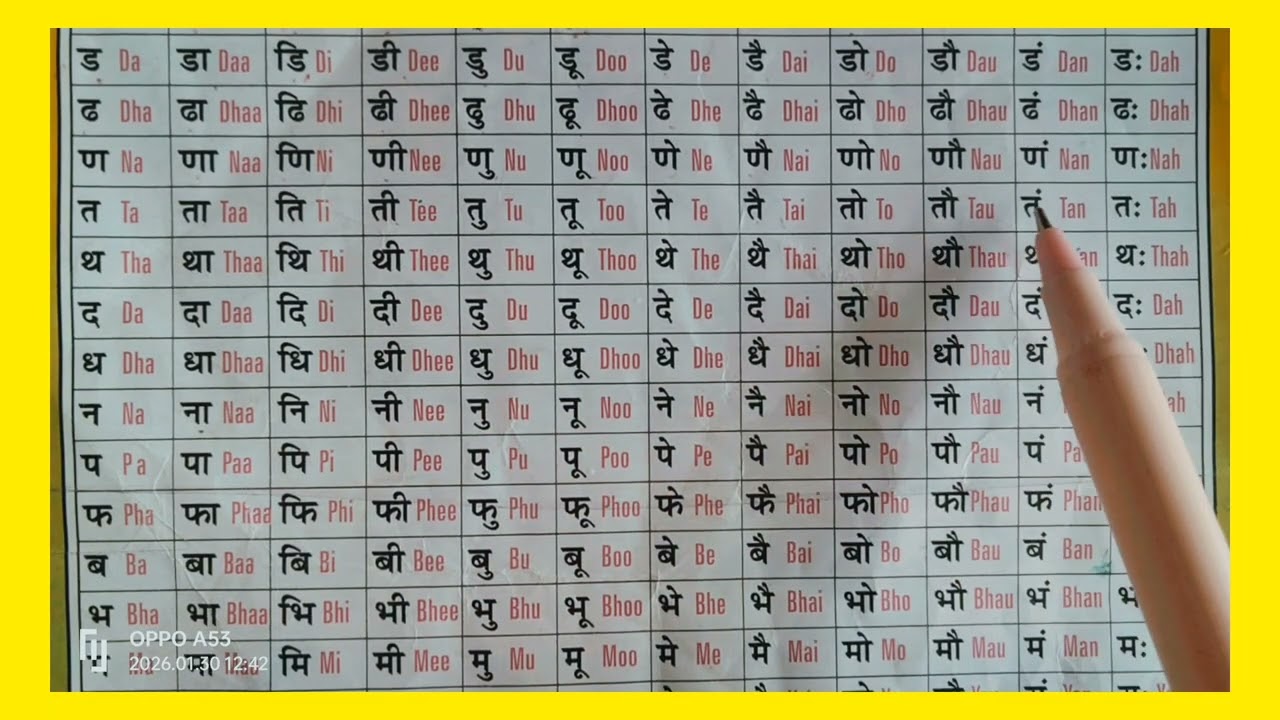 ड Da डा Daa डि Di डी Dee डु Du डू Doo डे De डै Dai डो Do डौ Dau डं Dan डः Dah
ढ Dha ढा Dhaa ढि Dhi ढी Dhee ढु Dhu ढू Dhoo ढे Dhe ढै Dhai ढो Dho ढौ Dhau ढं Dhan ढः Dhah
ण Na णा Naa णि Ni णी Nee णु Nu णू Noo णे Ne णै Nai णो No णौ Nau णं Nan णः Nah
त Ta ता Taa ति Ti ती Tee तु Tu तू Too ते Te तै Tai तो To तौ Tau तं Tan तः Tah
थ Tha था Thaa थि Thi थी Thee थु Thu थू Thoo थे The थै Thai थो Tho थौ Thau थः Thah
द Da दा Daa दि Di दी Dee दु Du दू Doo दे De दै Dai दो Do दौ Dau दं दः Dah
ध Dha धा Dhaa धि Dhi धी Dhee धु Dhu धू Dhoo धे Dhe धै Dhai धो Dho धौ Dhau धं Dhah
न Na ना Naa नि Ni नी Nee नु Nu नू Noo ने Ne नै Nai नो No नौ Nau नं
प Pa पा Paa पि Pi पी Pee पु Pu पू Poo पे Pe पै Pai पो Po पौ Pau पं
फ Pha फा Phaa फि Phi फी Phee फु Phu फू Phoo फे Phe फै Phai फो Pho फौ Phau फं Phan
ब Ba बा Baa बि Bi बी Bee बु Bu बू Boo बे Be बै Bai बो Bo बौ Bau बं Ban
भ Bha भा Bhaa भि Bhi भी Bhee भु Bhu भू Bhoo भे Bhe भै Bhai भो Bho भौ Bhau भं Bhan
OPPO A53
2026.01.30 12:42
मि Mi मी Mee मु Mu मू Moo मे Me मै Mai मो Mo मौ Mau मं Man मः